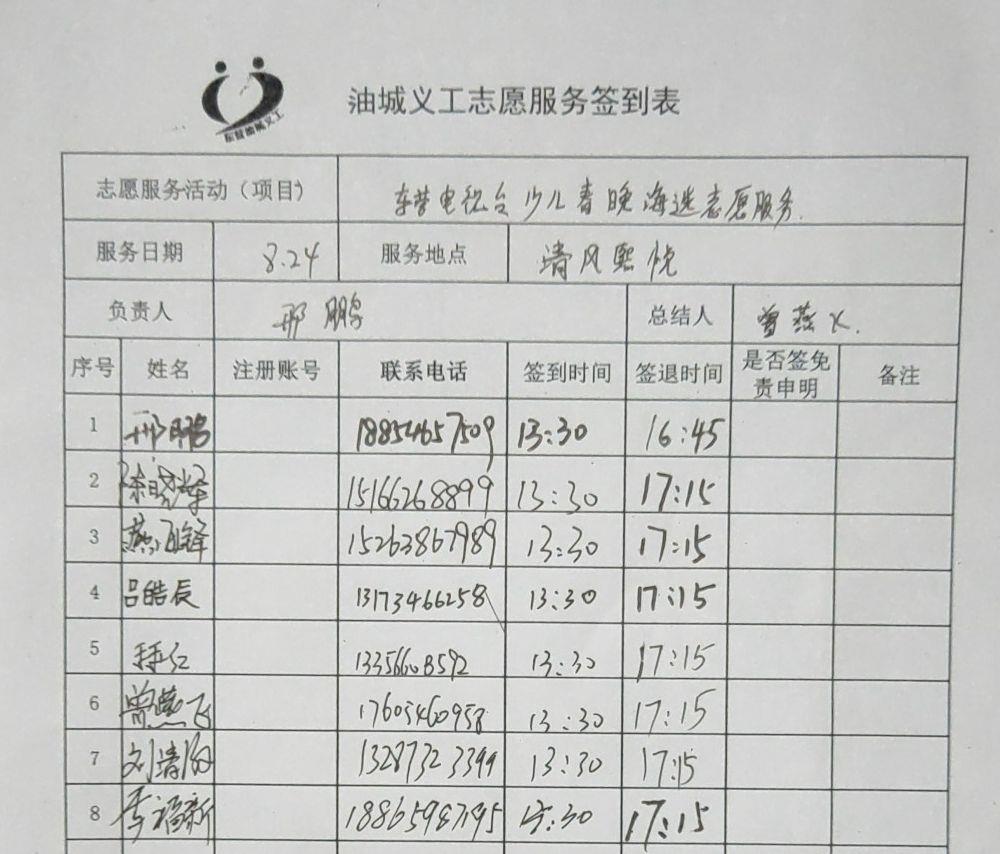 东营油城义工
油城义工志愿服务签到表
志愿服务活动（项目） 东营电视台少儿春晚海选志愿服务.
服务日期 8.24 服务地点 清风熙悦
负责人 邢鹏 总结人 曾燕飞.
序号 姓名 注册账号 联系电话 签到时间 签退时间 是否签免责申明 备注
1 邢鹏 18854657509 13:30 16:45
2 徐晓 15166268899 13:30 17:15
3 燕 锋 15263867989 13:30 17:15
4 吕皓辰 13173466258 13:30 17:15
5 13:30 17:15
6 曾燕飞 17605460958 13:30 17:15
7 刘清 13287323399 13:30 17:15
8 李福新 18865987195 13:30 17:15